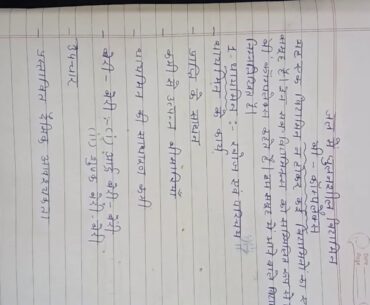 जल में घुलनशील विटामिन
बी - कॉम्पलेक्स
यह एक विटामिन न होकर कई विटामिनों का एक
समूह है। इन सब विटामिन को सम्मिलित रूप से
बी कॉम्पलेक्स कहते हैं। इस समूह में आने वाले
निम्नलिखित हैं।
1. थायमिन :- खोज एवं परिचय
- थायमिन के कार्य
- प्राप्ति के साधन
- कमी से उत्पन्न बीमारियाँ
- थायमिन की साधारण कमी
- बेरी - बेरी :- (i) आर्द्र बेरी - बेरी
(ii) शुष्क बेरी - बेरी
- उपचार
- प्रस्तावित दैनिक आवश्यकता